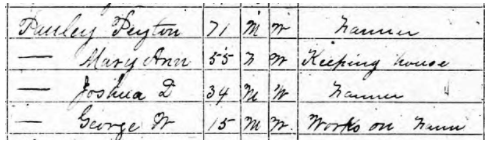 Pursley Peyton 71 M W Farmer
— Mary Ann 55 F W Keeping house
— Joshua D 34 M W Farmer
— George W 15 M W Works on Farm